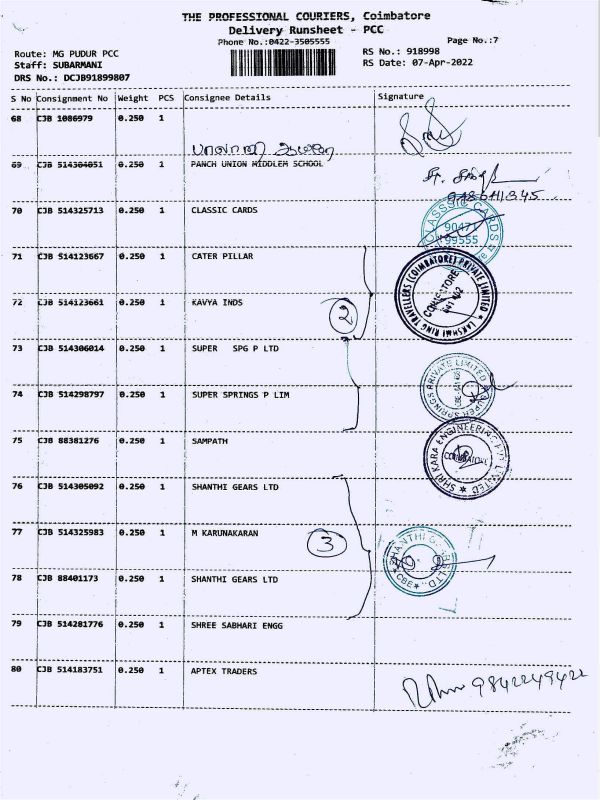 THE PROFESSIONAL COURIERS, Coimbatore
Delivery Runsheet - PCC
Phone No.:0422-3505555
Page No.:7
Route: MG PUDUR PCC
RS No.: 918998
Staff: SUBARMANI
RS Date: 07-Apr-2022
DRS No.: DCJB91899807
S No Consignment No Weight PCS Consignee Details Signature
68 CJB 1086979 0.250 1
69 CJB 514304051 0.250 1 PANCH UNION MIDDLEM SCHOOL
70 CJB 514325713 0.250 1 CLASSIC CARDS
CLASSSIC CARDS
90471
99555
71 CJB 514123667 0.250 1 CATER PILLAR
LAKSHMI RING TRAVELLERS (COIMBATORE) PRIVATE LIMITED
COIMBATORE
641 402
72 CJB 514123661 0.250 1 KAVYA INDS
2
73 CJB 514306014 0.250 1 SUPER SPG P LTD
74 CJB 514298797 0.250 1 SUPER SPRINGS P LIM
SUPER SPRINGS PRIVATE LIMITED
75 CJB 88381276 0.250 1 SAMPATH
SHRI KARA ENGINEERING PVT LIMITED
76 CJB 514305092 0.250 1 SHANTHI GEARS LTD
77 CJB 514325983 0.250 1 M KARUNAKARAN
3
SHANTHI GEARS LTD.
CBE
78 CJB 88401173 0.250 1 SHANTHI GEARS LTD
79 CJB 514281776 0.250 1 SHREE SABHARI ENGG
80 CJB 514183751 0.250 1 APTEX TRADERS
9842249422